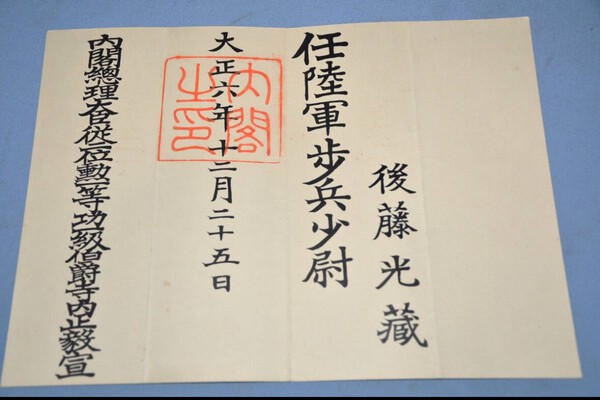 後藤光藏
任陸軍歩兵少尉
大正六年十二月二十五日
内閣之印
内閣總理大臣從二位勲一等功一級伯爵寺内正毅宣